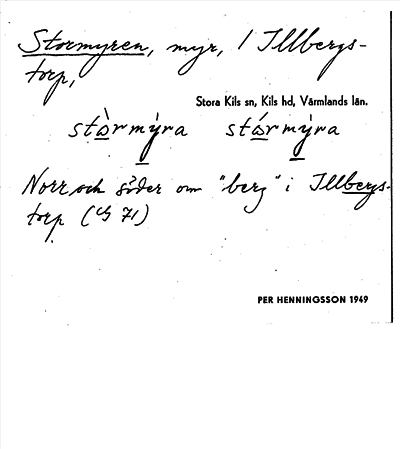 Stormyren, myr, i Illbergs-
torp,
Stora Kils sn, Kils hd, Värmlands län.
stòrmýra stórmỳra
Norr och söder om "berg" i Illbergs-
torp (Cg 71)
PER HENNINGSSON 1949